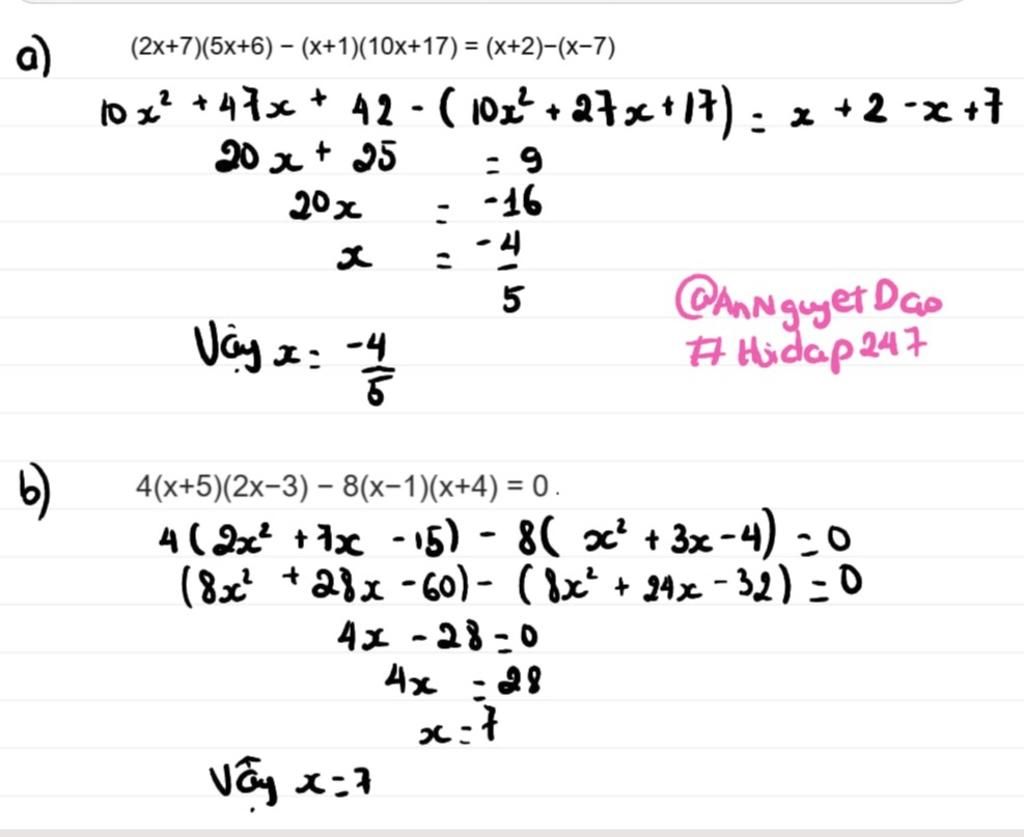 a) (2x+7)(5x+6) − (x+1)(10x+17) = (x+2)−(x−7)
10x² + 47x + 42 - (10x² + 27x + 17) = x + 2 - x + 7
20x + 25 = 9
20x = -16
x = -4/5
@AnNguyetDao
#Hidap247
Vậy x = -4/5
b) 4(x+5)(2x−3) − 8(x−1)(x+4) = 0.
4(2x² + 7x - 15) - 8(x² + 3x - 4) = 0
(8x² + 28x - 60) - (8x² + 24x - 32) = 0
4x - 28 = 0
4x = 28
x = 7
Vậy x = 7